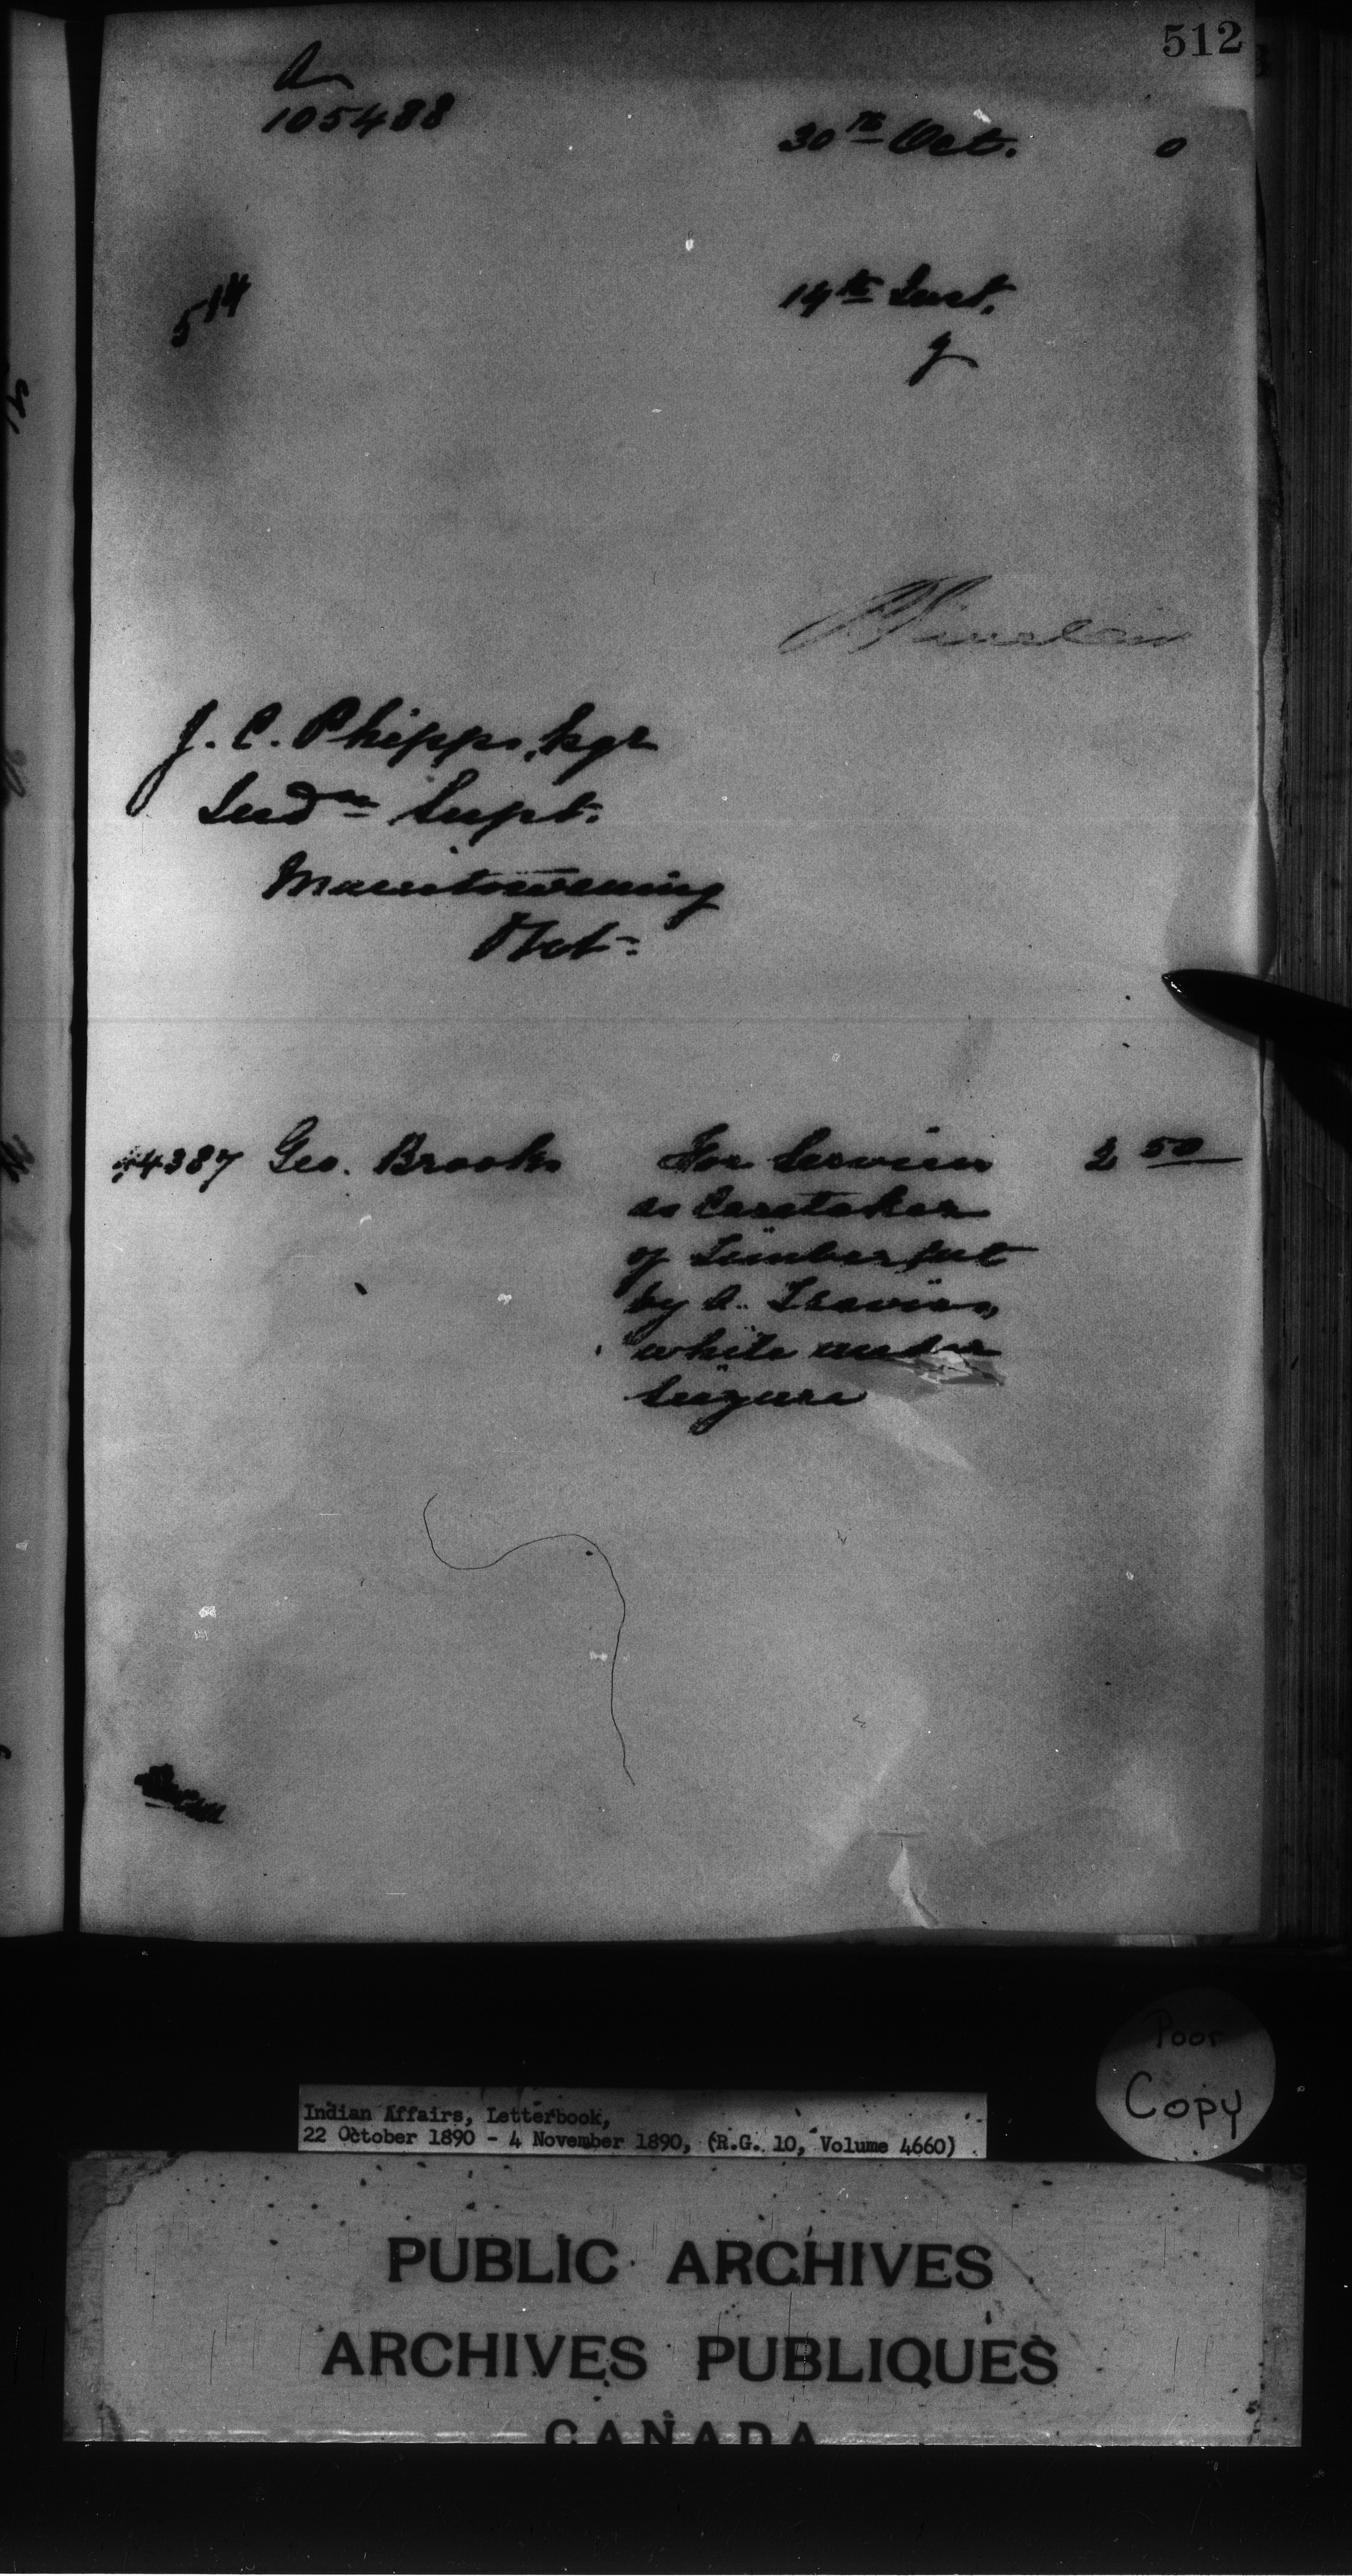 512
105488
30th Oct. 0
514
14th Inst.
J. C. Phipps, Esqr
Indn Supt.
Manitowaning
Ont.
4387 Geo. Brooks For Services 2 50
as Caretaker
of Timber cut
by A. Travers,
white under
Seizure
Poor
Copy
Indian Affairs, Letterbook,
22 October 1890 - 4 November 1890, (R.G. 10, Volume 4660)
PUBLIC ARCHIVES
ARCHIVES PUBLIQUES
CANADA